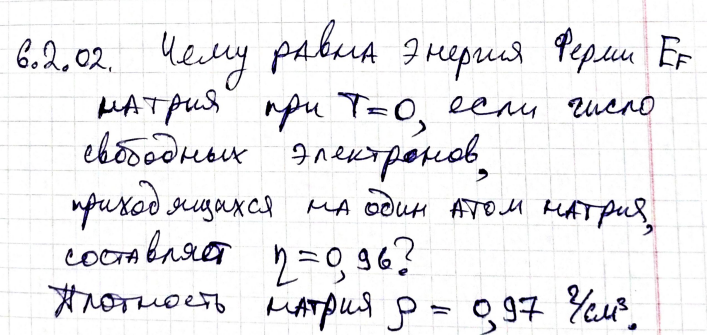 6.2.02. Чему равна энергия Ферми E_F
натрия при T=0, если число
свободных электронов,
приходящихся на один атом натрия,
составляет η=0,96?
Плотность натрия ρ = 0,97 г/см³.